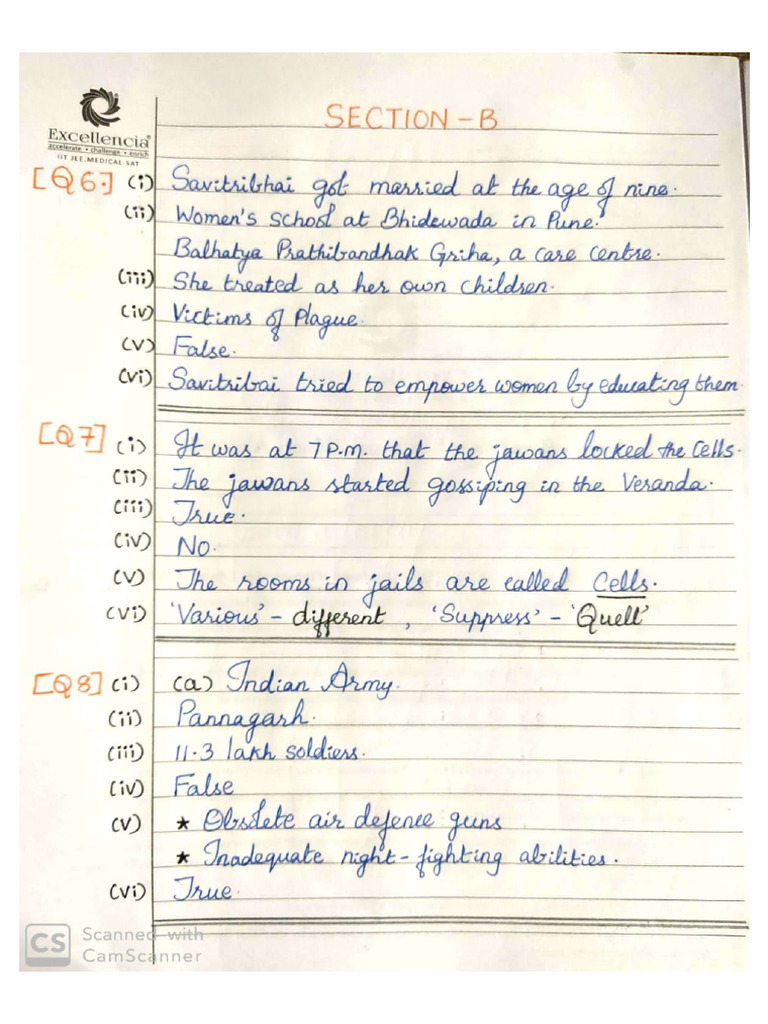 Excellencia
accelerate • challenge • enrich
IIT JEE.MEDICAL.SAT
SECTION - B
[Q6.] (i) Savitribhai got married at the age of nine.
(ii) Women's school at Bhidewada in Pune.
Balhatya Prathibandhak Griha, a care centre.
(iii) She treated as her own children.
(iv) Victims of Plague.
(v) False.
(vi) Savitribai tried to empower women by educating them.
[Q7] (i) It was at 7 P.M. that the jawans locked the Cells.
(ii) The jawans started gossiping in the Veranda.
(iii) True.
(iv) No.
(v) The rooms in jails are called Cells.
(vi) 'Various' - different , 'Suppress' - 'Quell'
[Q8] (i) (a) Indian Army.
(ii) Pannagarh.
(iii) 11.3 lakh soldiers.
(iv) False
(v) * Obsolete air defence guns
* Inadequate night-fighting abilities.
(vi) True.
CS Scanned with
CamScanner